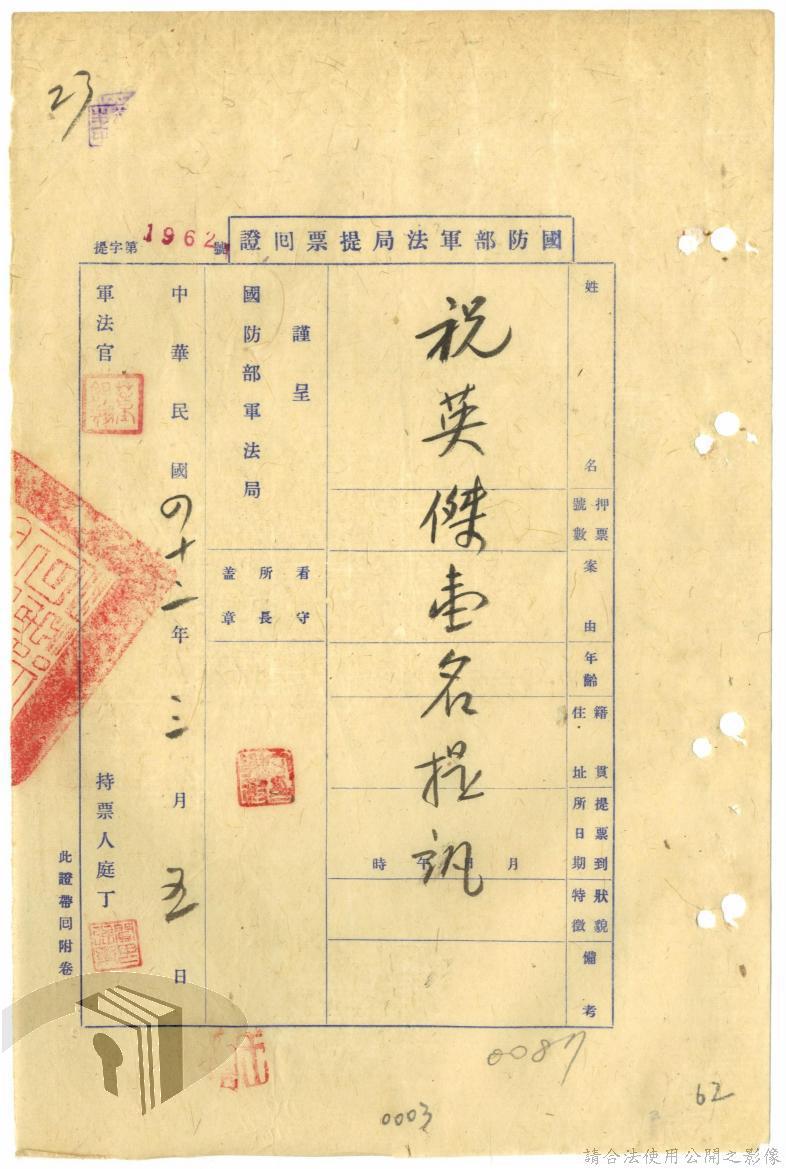 23
國防部軍法局提票回證
提字第1962號
姓名
押票號數
案由
年齡
籍貫住址
提票到所日期
狀貌特徵
備考
祝英傑壹名提訊
月日午時
謹呈
國防部軍法局
看守所長蓋章
中華民國四十二年三月五日
軍法官
持票人庭丁
此證帶回附卷
0087
0003
62
請合法使用公開之影像